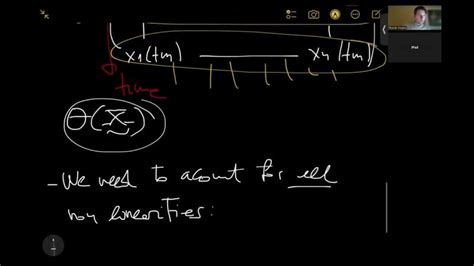 x1(tm) xn(tm)
time
Θ(X)
- We need to acount for all
non linearities: